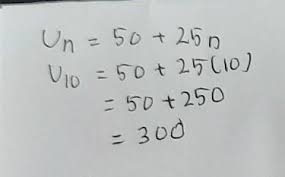 Un = 50 + 25n
U10 = 50 + 25(10)
= 50 + 250
= 300